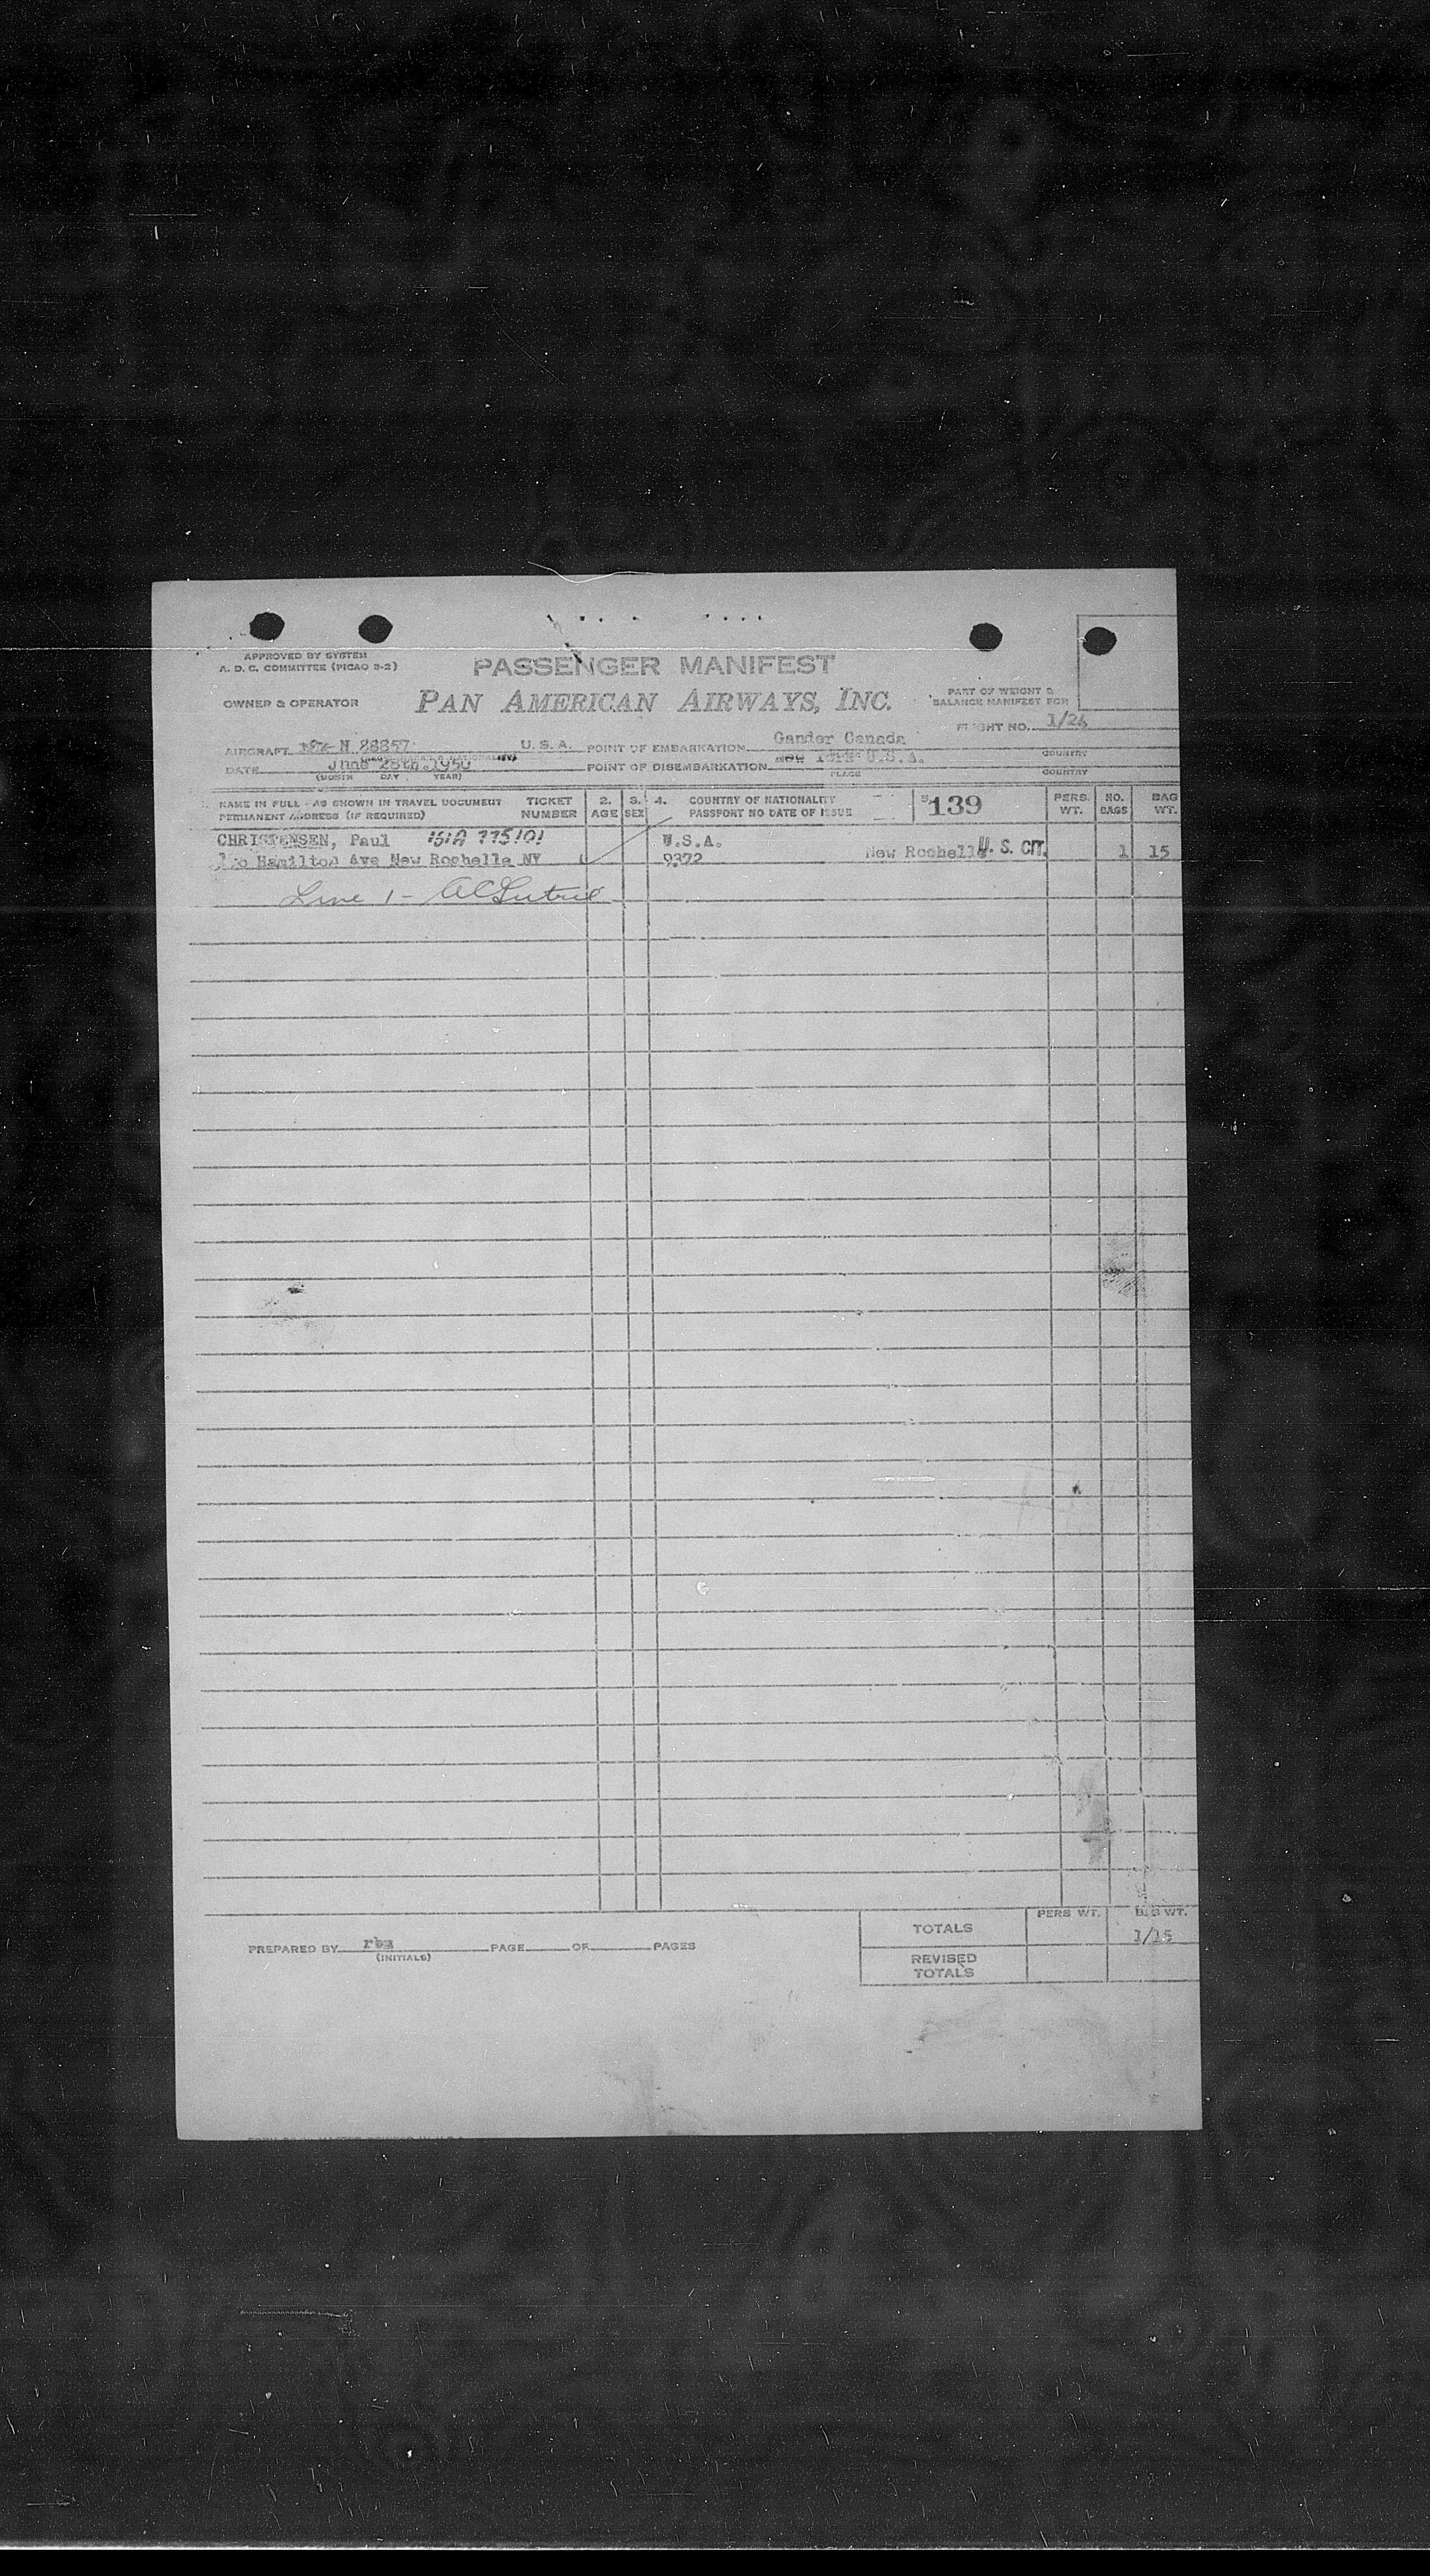 APPROVED BY SYSTEM
A. D. C. COMMITTEE (PICAO 9-2)
PASSENGER MANIFEST
OWNER & OPERATOR
PAN AMERICAN AIRWAYS, INC.
PART OF WEIGHT &
BALANCE MANIFEST FOR
FLIGHT NO. 1/24
AIRCRAFT N 88857 U. S. A. POINT OF EMBARKATION Gander Canada
COUNTRY
DATE June 28th.1950 POINT OF DISEMBARKATION New York U.S.A.
(MONTH DAY YEAR) PLACE COUNTRY
NAME IN FULL - AS SHOWN IN TRAVEL DOCUMENT TICKET 2. 3. 4. COUNTRY OF NATIONALITY 139 PERS. NO. BAG
PERMANENT ADDRESS (IF REQUIRED) NUMBER AGE SEX PASSPORT NO DATE OF ISSUE WT. BAGS WT.
CHRISTENSEN, Paul 151A 775101 U.S.A.
Hamilton Ave New Rochelle NY 9372 New Rochelle U. S. CIT. 1 15
Line 1 -
PERS WT. BAG WT.
TOTALS 1/15
PREPARED BY PAGE OF PAGES
(INITIALS)
REVISED
TOTALS